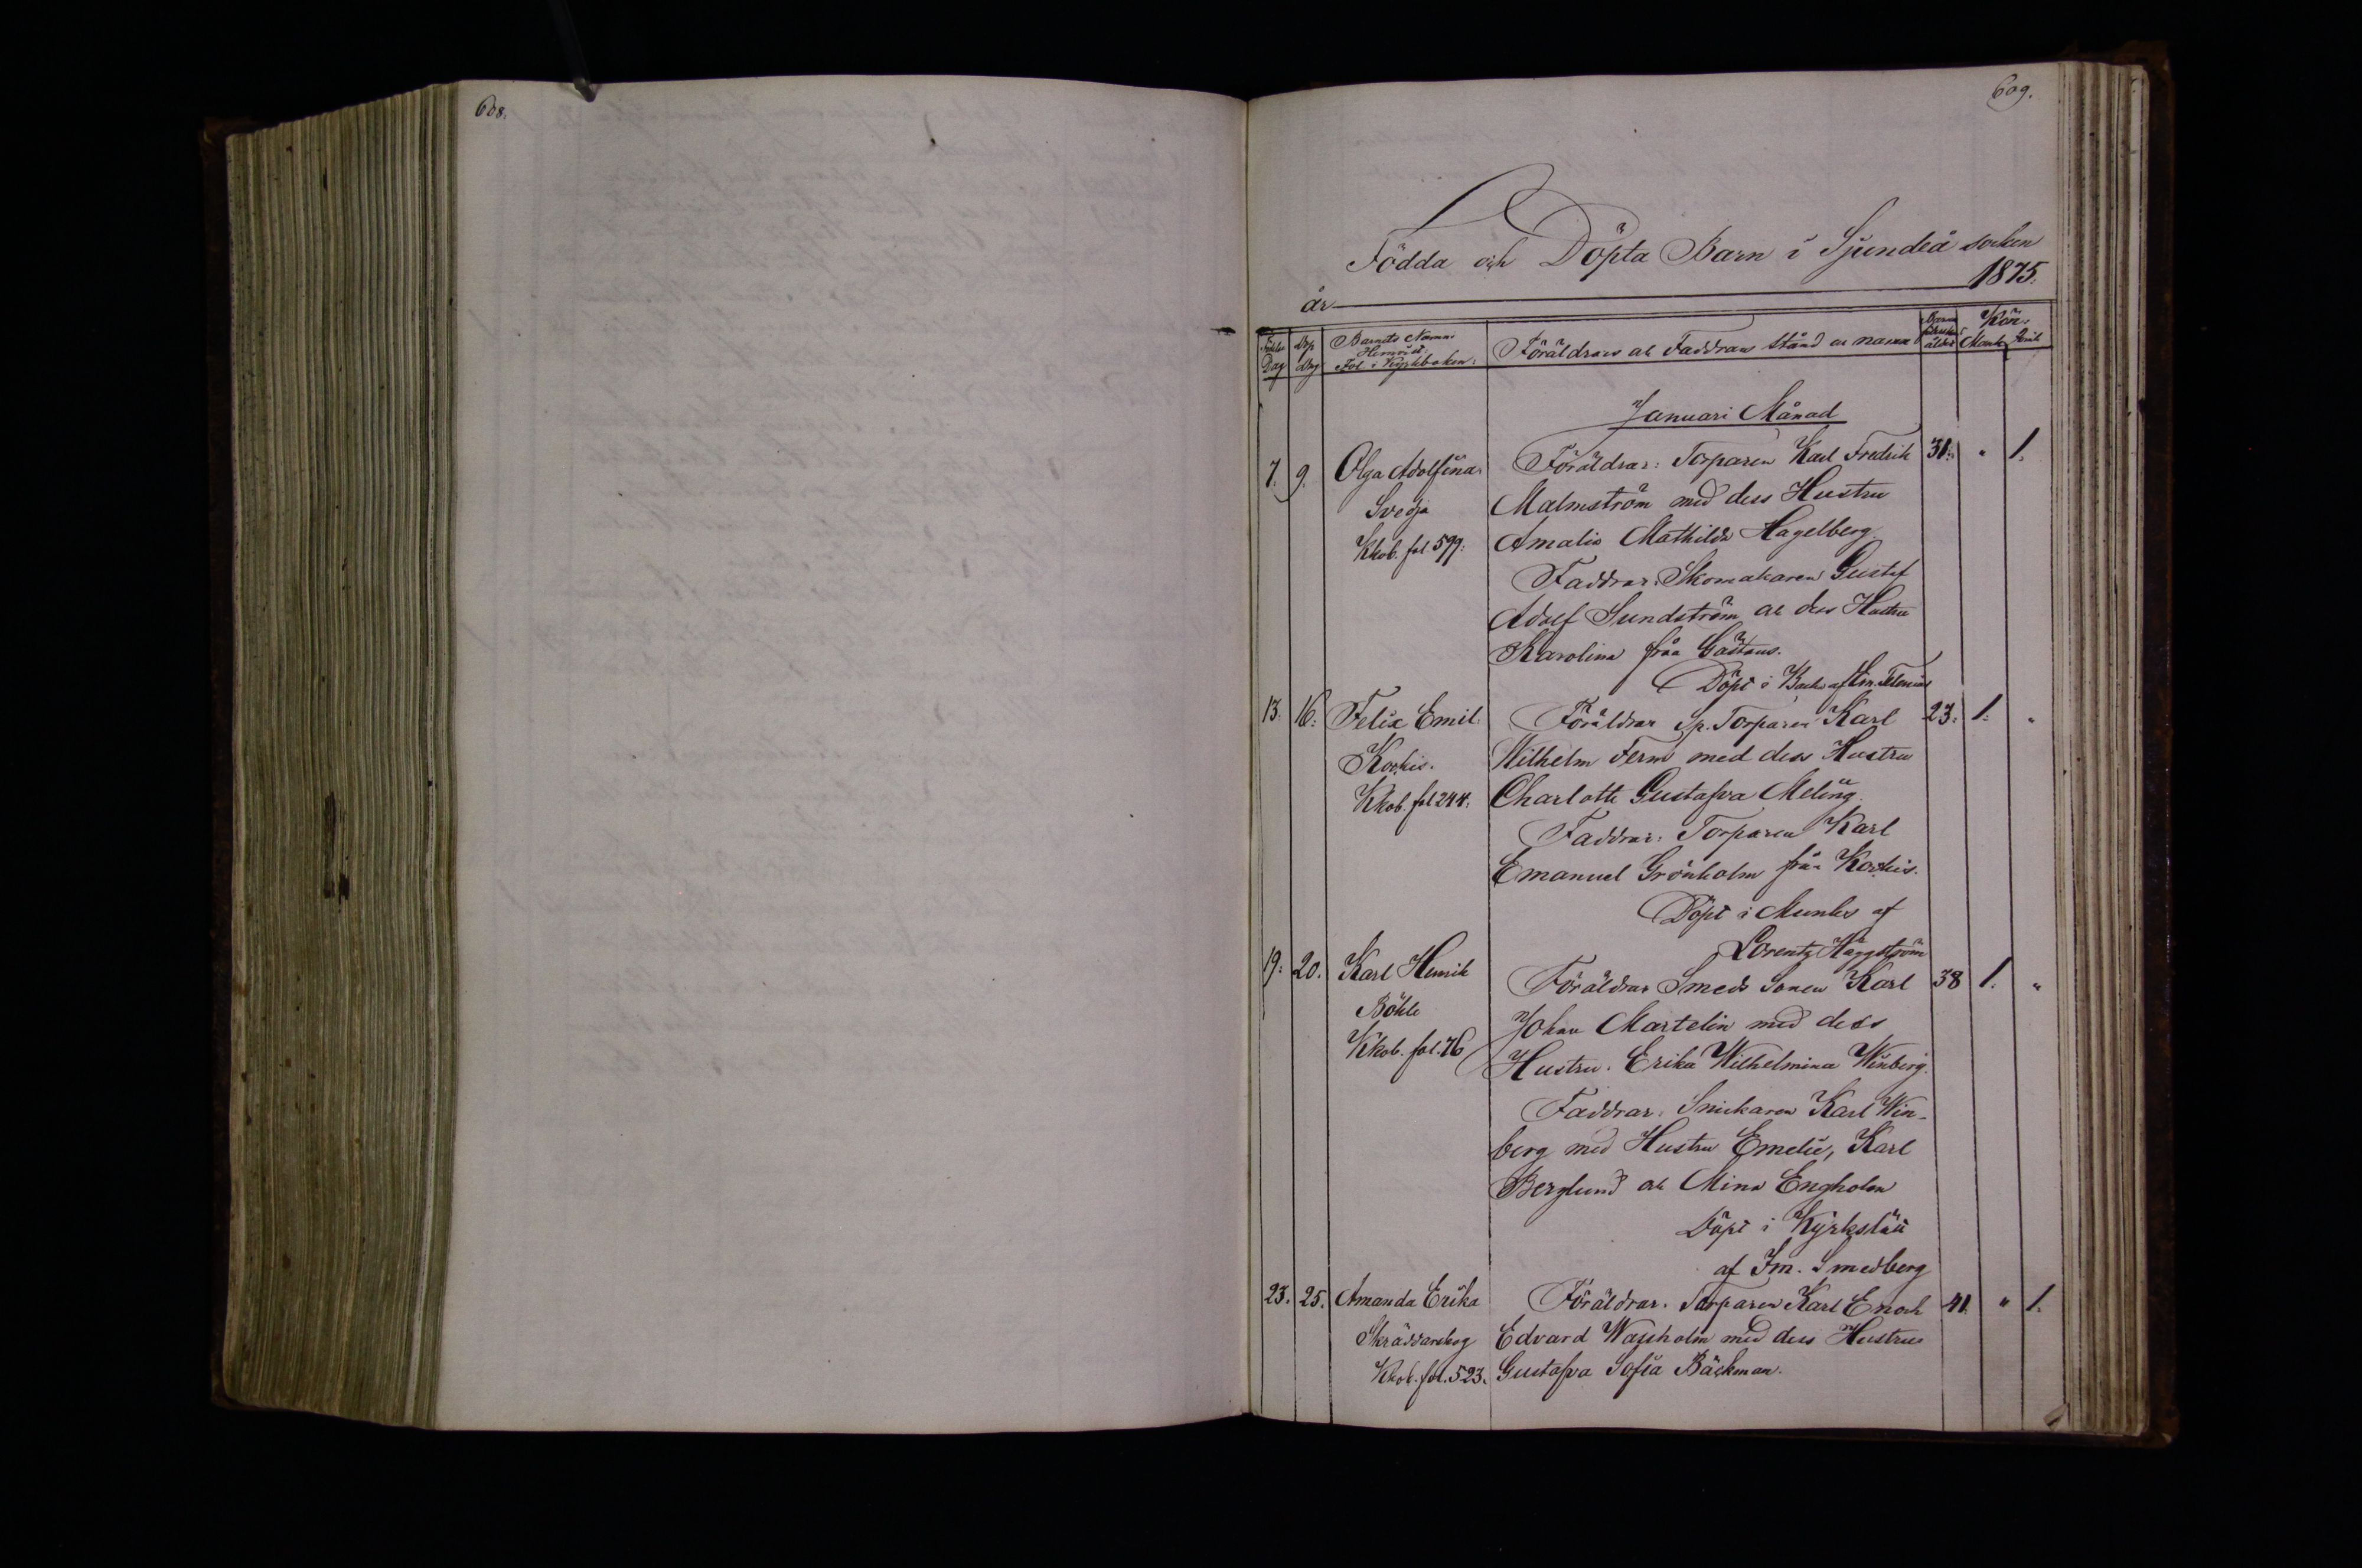 608.
609.
Födda och Döpta Barn i Sjundeå socken
år 1875.
Födelse Dag
Döp dag
Barnets Namn
Hemvist
Fol. i Kyrkboken.
Föräldrars ak Faddrars stånd ok namn
ålder
Kön.
Mank. Qvink
Januari Månad
7. 9. Olga Adolfina Föräldrar: Torparen Karl Fredrik 31. " 1.
Svedja Malmström med dess Hustru
Kkob. fol. 599. Amalia Mathilda Hagelberg.
Faddrar: Skomakaren Gustaf
Adolf Sundström ak dess Hustru
Karolina från Gåstans.
Döpt i af
13. 16. Felix Emil. Föräldrar Sp. Torparen Karl 23. 1. "
Korkis. Wilhelm Ferm med dess Hustru
Kkob. fol 244. Charlotte Gustafva Meling.
Faddrar: Torparen Karl
Emanuel Grönholm från Korkis.
Döpt i Munks af
Lorentz Häggström
19. 20. Karl Henrik Föräldrar Smeds Sonen Karl 38 1. "
Böhle Johan Martelin med dess
Kkob. fol. 76 Hustru. Erika Wilhelmina Winberg.
Faddrar: Snickaren Karl Win-
berg med Hustru Emelie, Karl
Berglund ak Mina Engholm
Döpt i Kyrkslätt
af Fm. Smedberg
23. 25. Amanda Erika Föräldrar. Torparen Karl Enoch 41. " 1.
Skräddarskog Edvard Wassholm med dess Hustru
Kkob. fol. 523. Gustafva Sofia Bäckman.